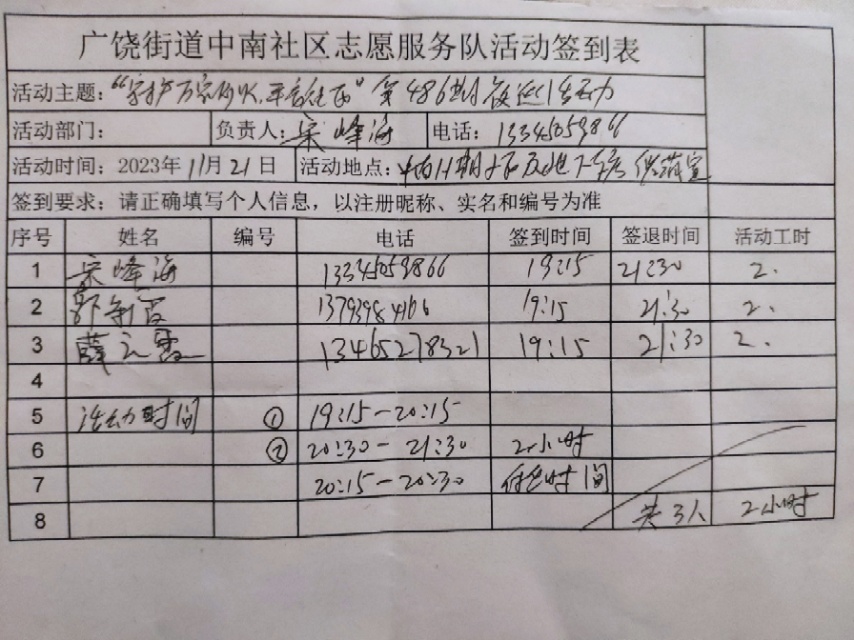 广饶街道中南社区志愿服务队活动签到表
活动主题：“守护万家灯火，平安社区”第486期夜巡活动
活动部门： 负责人：宋峰海 电话：13345059866
活动时间：2023年11月21日 活动地点：中南II期
签到要求：请正确填写个人信息，以注册昵称、实名和编号为准
序号 姓名 编号 电话 签到时间 签退时间 活动工时
1 宋峰海 13345059866 19:15 21:30 2.
2 13793984166 19:15 21:30 2.
3 薛云霞 13465278321 19:15 21:30 2.
4
5 活动时间 ① 19:15-20:15
6 ② 20:30-21:30 2小时
7 20:15-20:30 休息时间
8 共3人 2小时